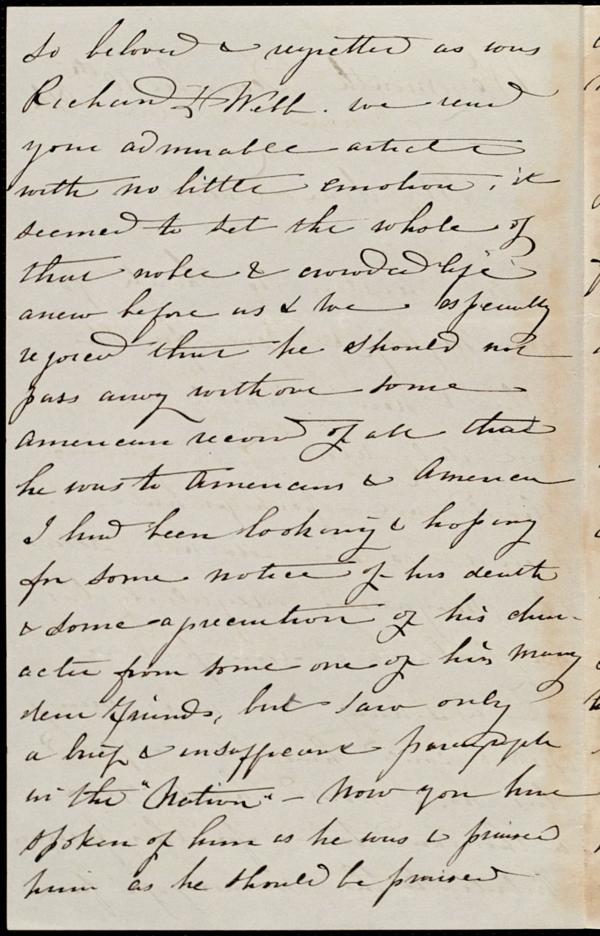 so beloved & regretted as was
Richard D Webb. We read
your admirable article
with no little emotion, it
seemed to set the whole of
that noble & crowded life
anew before us & we especially
rejoiced that he should not
pass away without some
American record of all that
he was to Americans & America
I had been looking & hoping
for some notice of his death
& some apreciation of his char-
acter from some one of his many
dear friends, but saw only
a brief & insufficient paragraph
in the "Nation" - Now you have
spoken of him as he was & praised
him as he should be praised